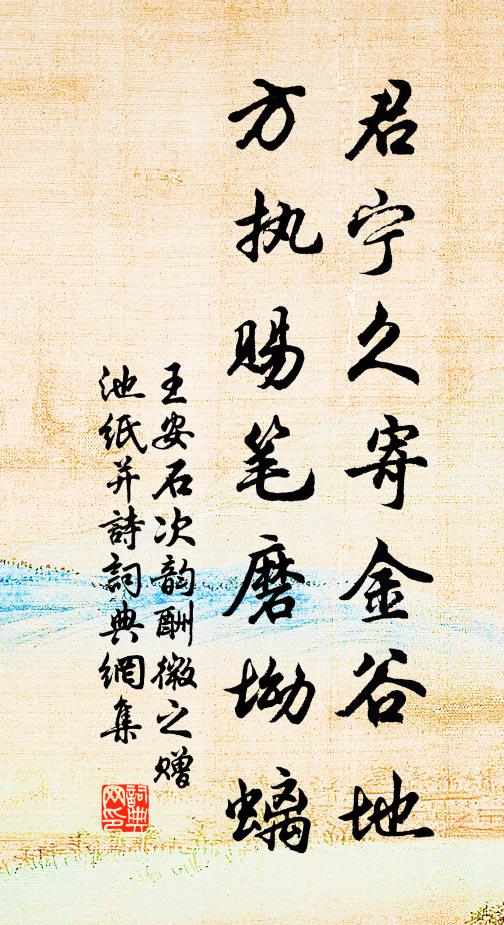 君宁久寄金谷地
方执赐笔磨坳螭
王安石次韵酬微之赠
池纸并詩詞典網集